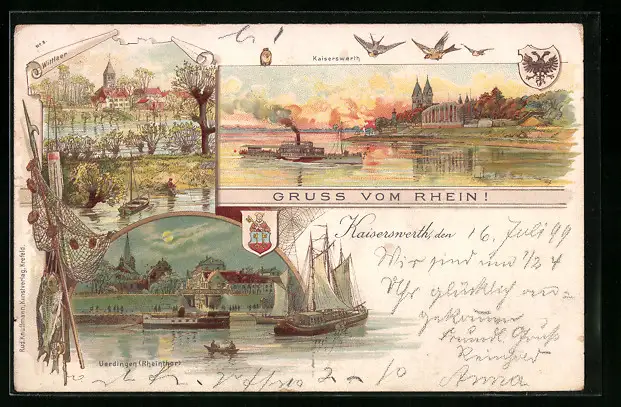 No 8.
Wittlaer
Kaiserswerth
GRUSS VOM RHEIN!
Kaiserswerth, den 16. Juli 99
Wir sind um 1/2 4
Uhr glücklich an-
gekommen
Freundl. Gruß
Reinhard
Anna
Uerdingen (Rheinthor).
2 - 10
Rud. Knuffmann, Kunstverlag, Krefeld.